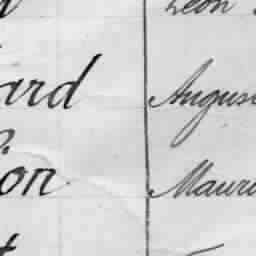 Léon
ard Augus
on Mauri